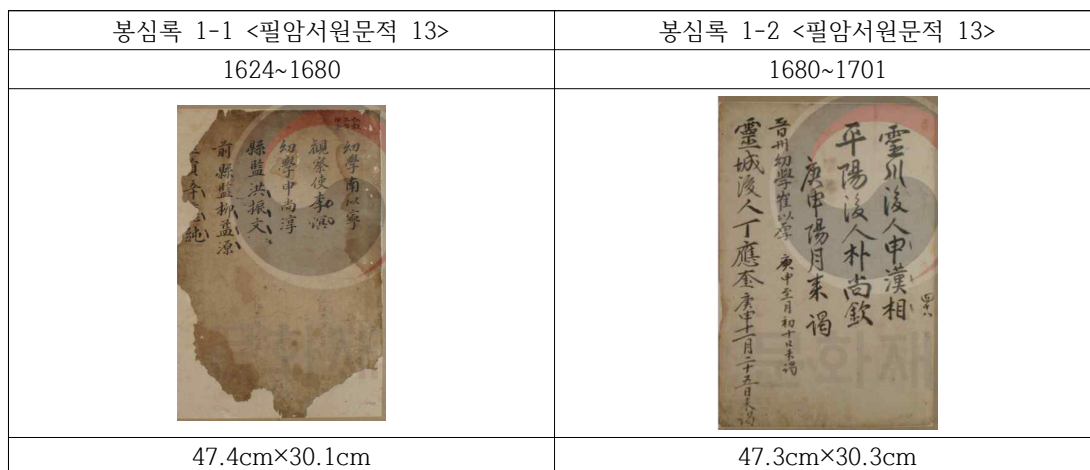 봉심록 1-1 <필암서원문적 13>
봉심록 1-2 <필암서원문적 13>
1624~1680
1680~1701
幼學南以寧
觀察使李溟
幼學申尚淳
縣監洪振文
前縣監柳益源
靈川後人申漢相
平陽後人朴尚欽
庚申陽月來謁
晋州幼學崔以厚 庚申至月初十日来謁
靈城後人丁應奎 庚申十一月二十五日来謁
문화재
47.4cm×30.1cm
47.3cm×30.3cm